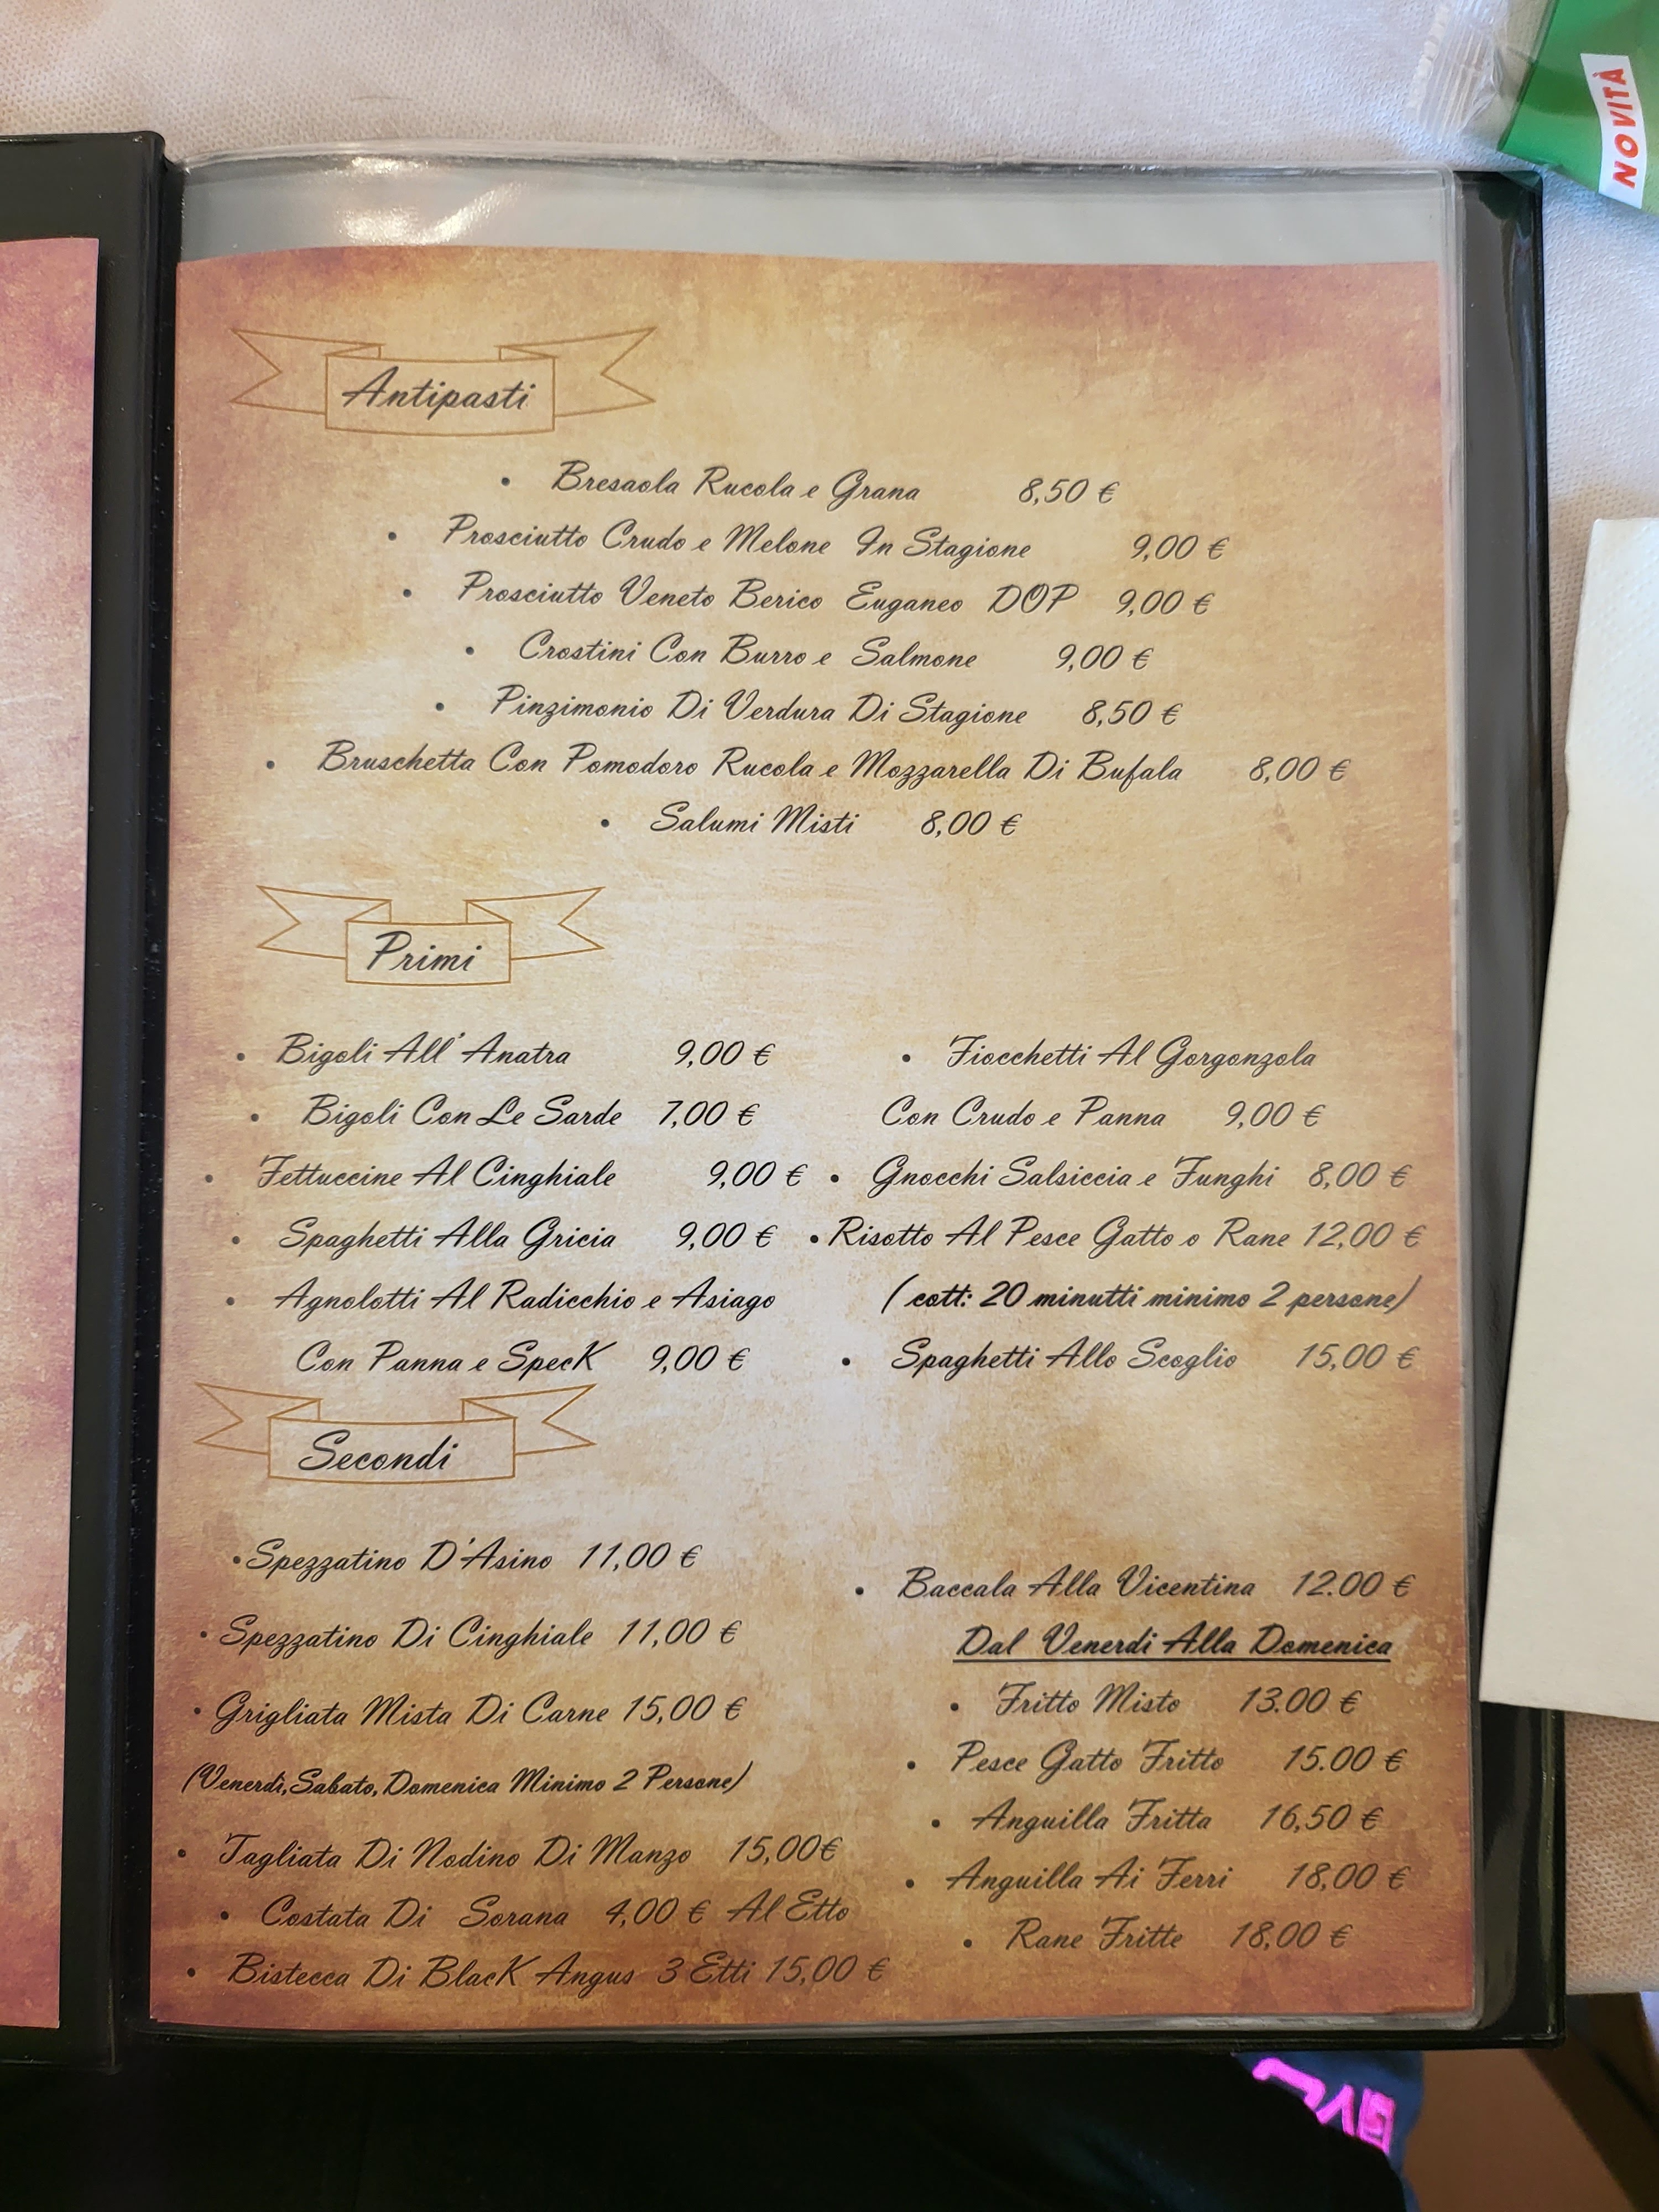 NOVITÀ
Antipasti
• Bresaola Rucola e Grana 8,50 €
• Prosciutto Crudo e Melone In Stagione 9,00 €
• Prosciutto Veneto Berico Euganeo DOP 9,00 €
• Crostini Con Burro e Salmone 9,00 €
• Pinzimonio Di Verdura Di Stagione 8,50 €
• Bruschetta Con Pomodoro Rucola e Mozzarella Di Bufala 8,00 €
• Salumi Misti 8,00 €
Primi
• Bigoli All' Anatra 9,00 €
• Bigoli Con Le Sarde 7,00 €
• Fettuccine Al Cinghiale 9,00 €
• Spaghetti Alla Gricia 9,00 €
• Agnolotti Al Radicchio e Asiago
Con Panna e SpecK 9,00 €
• Fiocchetti Al Gorgonzola
Con Crudo e Panna 9,00 €
• Gnocchi Salsiccia e Funghi 8,00 €
• Risotto Al Pesce Gatto o Rane 12,00 €
( cott: 20 minutti minimo 2 persone)
• Spaghetti Allo Scoglio 15,00 €
Secondi
• Spezzatino D'Asino 11,00 €
• Spezzatino Di Cinghiale 11,00 €
• Grigliata Mista Di Carne 15,00 €
(Venerdì, Sabato, Domenica Minimo 2 Persone)
• Tagliata Di Nodino Di Manzo 15,00€
• Costata Di Sorana 4,00 € Al Etto
• Bistecca Di BlacK Angus 3 Etti 15,00 €
• Baccala Alla Vicentina 12.00 €
Dal Venerdi Alla Domenica
• Fritto Misto 13.00 €
• Pesce Gatto Fritto 15.00 €
• Anguilla Fritta 16,50 €
• Anguilla Ai Ferri 18,00 €
• Rane Fritte 18,00 €